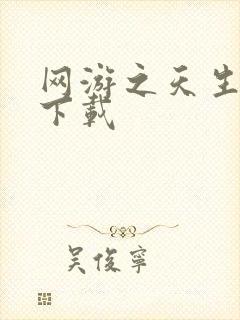 网游之天生
下载
吴俊宁